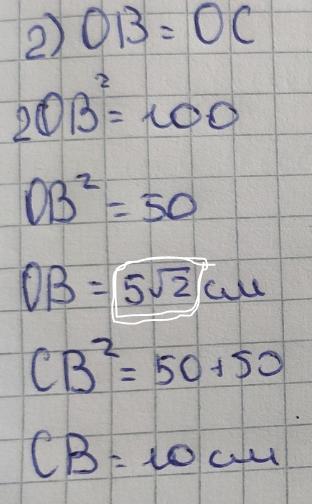 2) OB = OC
2OB² = 100
OB² = 50
OB = 5√2 см
CB² = 50+50
CB = 10 см